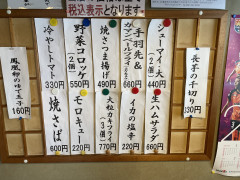 税込表示となります。
長芋の千切り
330円
シューマイ・大
（2個）
440円
生ハムサラダ
660円
手羽先＆
490円
イカの塩辛
220円
焼さつま揚げ
490円
大粒カキフライ
（3個）
770円
野菜コロッケ
（2個）
550円
モロキュー
220円
冷やしトマト
330円
焼さば
600円
風味卵のゆで玉子
160円